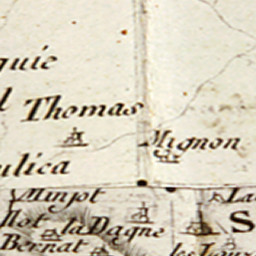 quie
l Thomas
Mignon
ulica
Minjot
La
la Dagne
S
Bernat
les